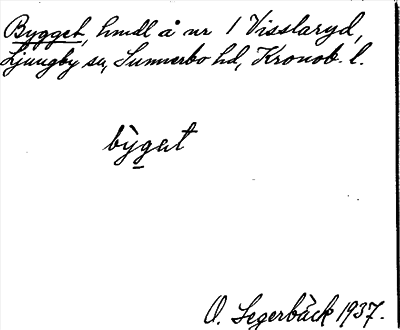 Bygget, hmdl å nr 1 Visslaryd,
Ljungby sn, Sunnerbo hd, Kronob. l.
bỳgət
O. Segerbäck 1937.